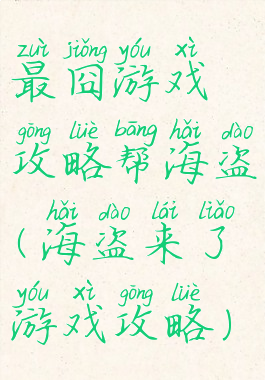 zuì jiǒng yóu xì
最囧游戏
gōng lüè bāng hǎi dào
攻略帮海盗
hǎi dào lái liǎo
(海盗来了
yóu xì gōng lüè
游戏攻略)